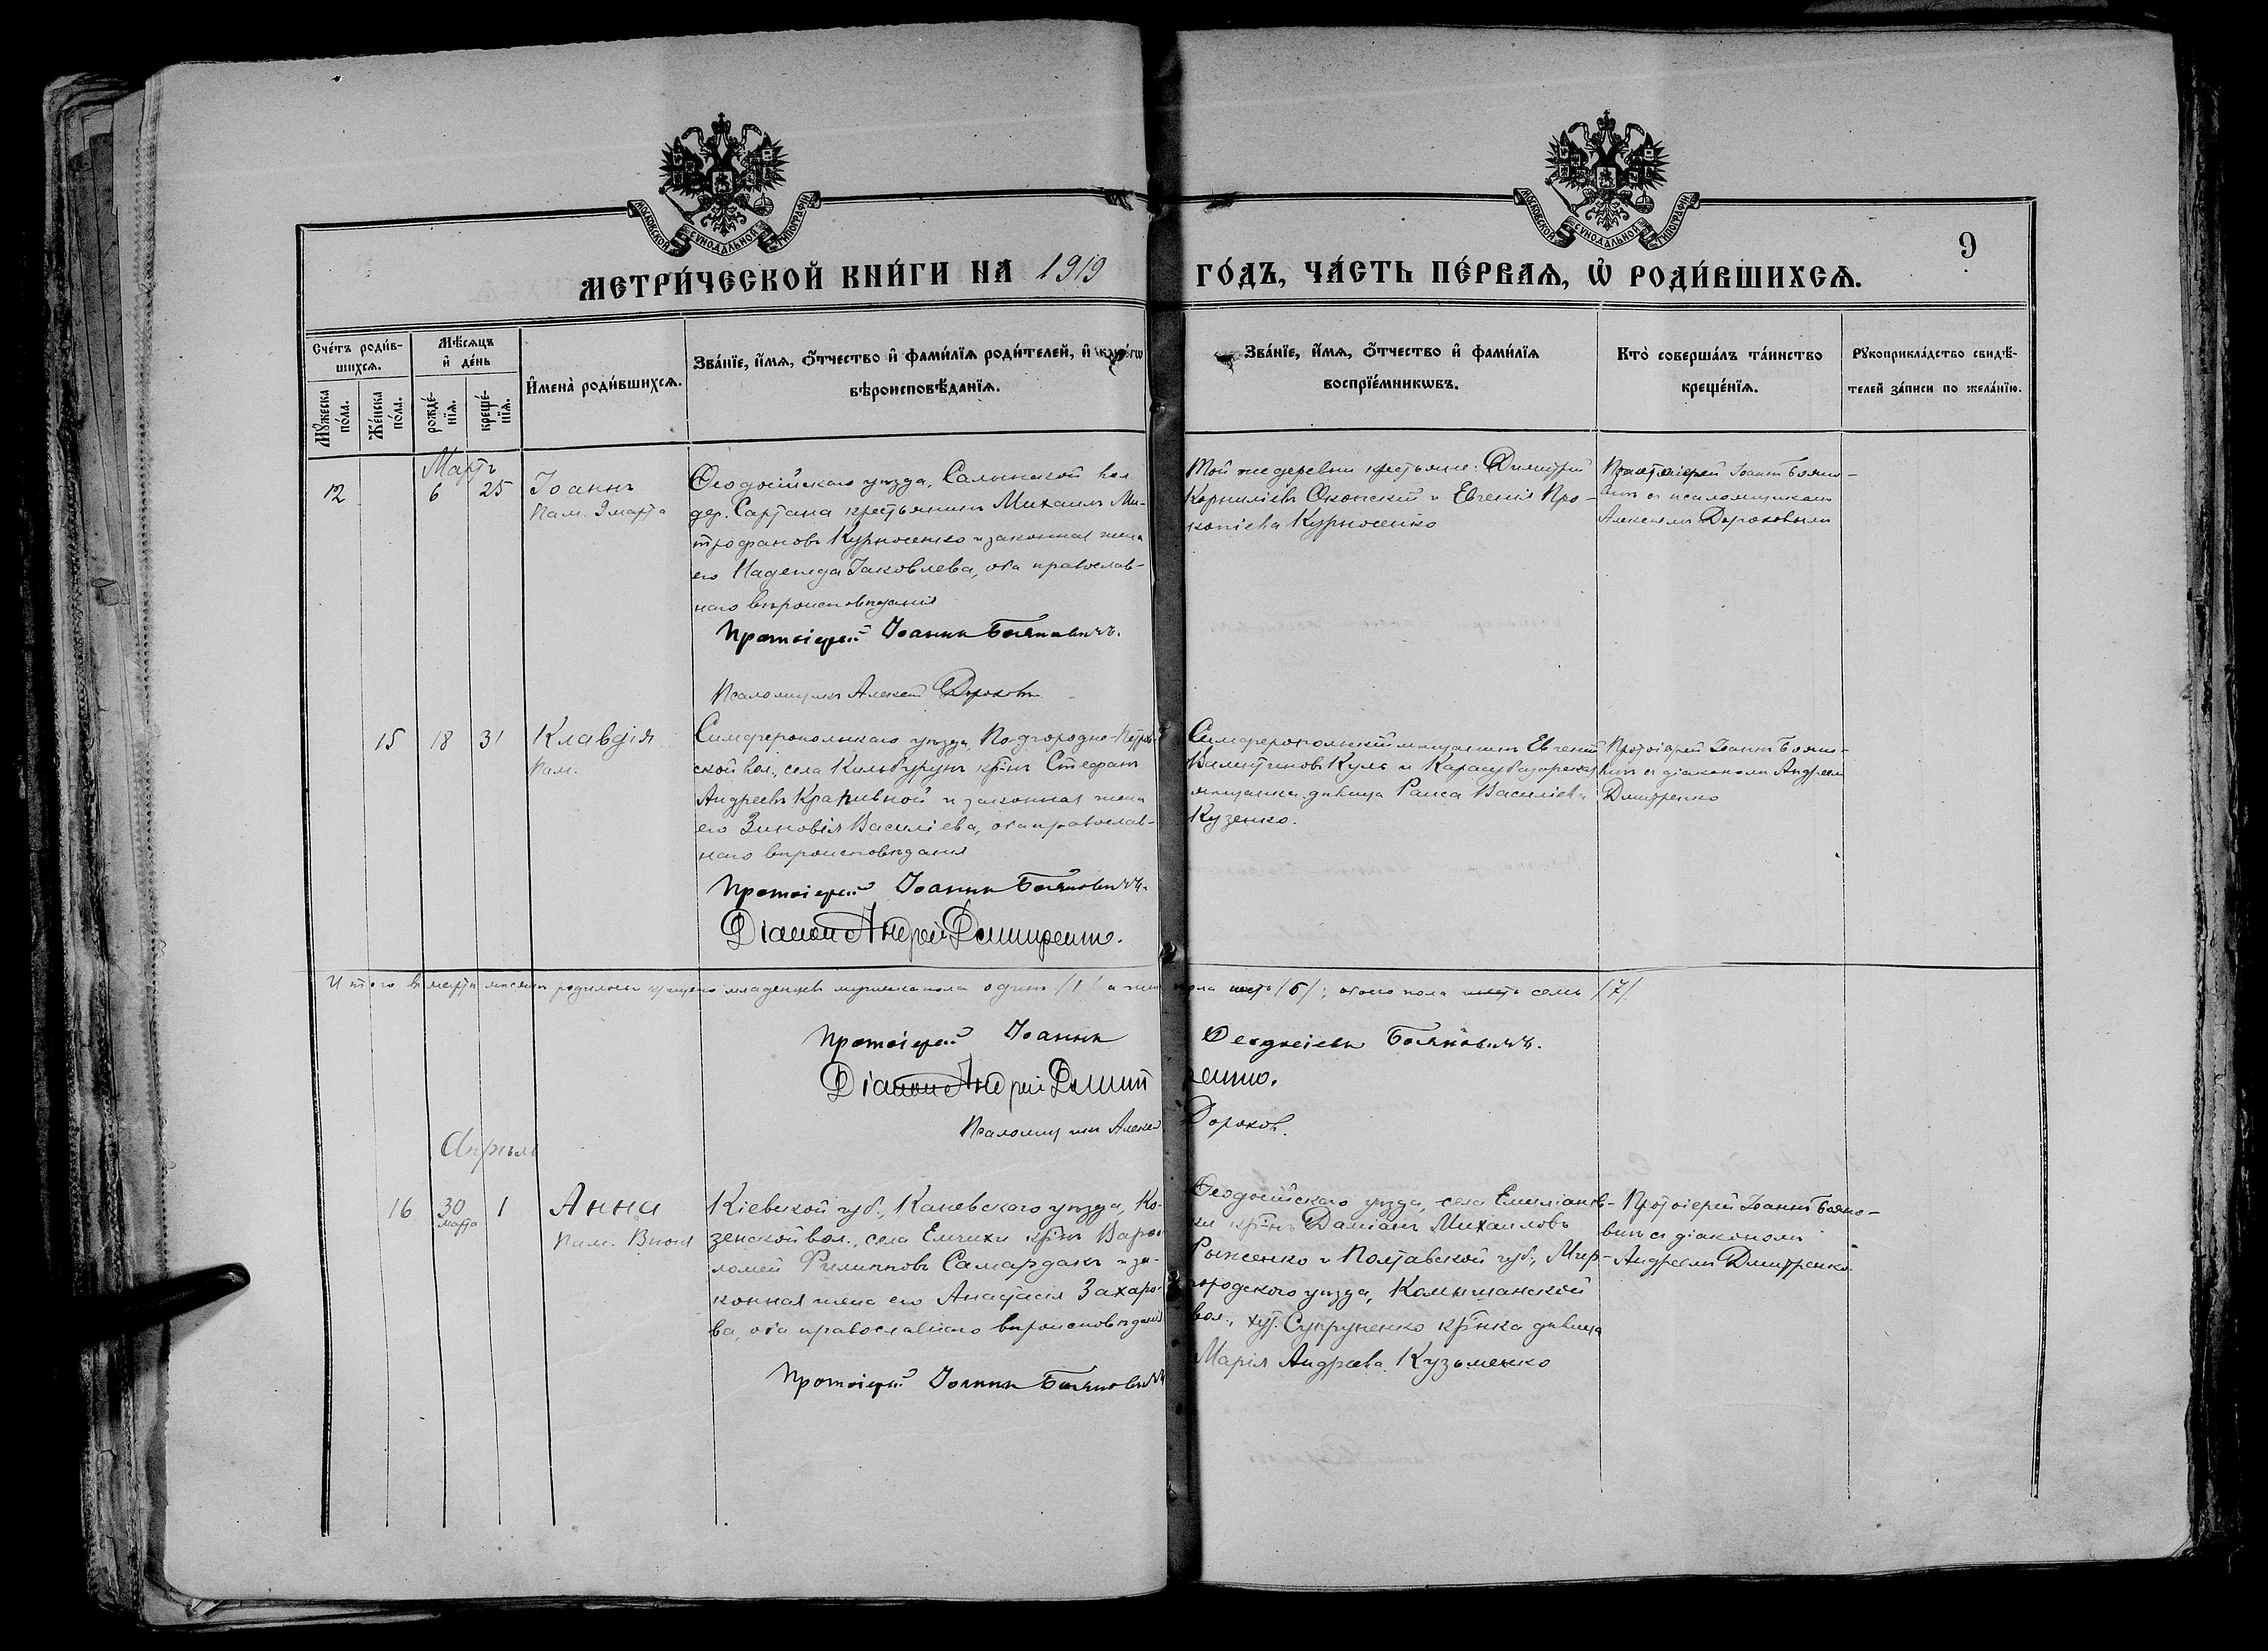 МОСКОВСКОЙ СѴНОДАЛЬНОЙ ТИПОГРАФІИ
МОСКОВСКОЙ СѴНОДАЛЬНОЙ ТИПОГРАФІИ
9
МЕТРИ́ЧЕСКОЙ КНИ́ГИ НА 1919 ГО́ДЪ, ЧА́СТЬ ПЕ́РВАѦ, Ѡ РОДИ́ВШИХСѦ.
Сче́тъ роди́в-
шихсѧ.
Мꙋ́жеска по́ла.
Же́нска по́ла.
Мѣ́сѧцъ и де́нь
рожде́-нїѧ.
креще́-нїѧ.
И҆мена̀ роди́вшихсѧ.
Зва́нїе, и҆́мѧ, ѻ҆́тчество и҆ фами́лїѧ роди́телей, и҆ како́гѡ
вѣроисповѣ́данїѧ.
Зва́нїе, и҆́мѧ, ѻ҆́тчество и҆ фами́лїѧ
воспрїе́мникѡвъ.
Кто̀ соверша́лъ та́инство
креще́нїѧ.
Рꙋкоприкла́дство свидѣ́-
телей за́писи по жела́нїю.
Мартъ
12 6 25
Іоаннъ
Пам. 9 марта
Ѳеодосійскаго уѣзда, Салынской вол
дер. Сартана крестьянинъ Михаилъ Ми-
трофановъ Курносенко и законная жена
его Надежда Іаковлева, оба православ-
наго вѣроисповѣданія
Протоіерей Іоаннъ Бояновичъ.
Псаломщикъ Алексей Дороховъ
Той же деревни крестьяне: Димитрій
Корниліевъ Оконскій и Евгенія Про-
копіева Курносенко
Протоіерей Іоаннъ Бояно-
вичъ съ псаломщикомъ
Алексеемъ Дороховымъ
15 18 31
Клавдія
Пам.
Симферопольскаго уѣзда, Подгородне-Петров-
ской вол., села Кильбурунъ кр-нъ Стефанъ
Андреевъ Крапивной и законная жена
его Зиновія Василіева, оба православ-
наго вѣроисповѣданія
Протоіерей Іоаннъ Бояновичъ.
Діаконъ Андрей Дмитренко.
Симферопольскій мѣщанинъ Евгеній
Куль и Карасубазарская
мѣщанка дѣвица Раиса Василіева
Кузенко.
Протоіерей Іоаннъ Бояно-
вичъ съ діакономъ Андреемъ
Дмитренко
Итого въ мартѣ мѣсяцѣ родилось и крещено младенцевъ мужеска пола одинъ /1/ а жен пола шесть /6/; обоего пола семь /7/.
Протоіерей Іоаннъ Ѳеодосіевъ Бояновичъ.
Діаконъ Андрей Дмитренко.
Псаломщикъ Алексей Дороховъ.
Апрѣль
16 30 марта 1
Анна
Пам.
Кіевской губ., Каневскаго уѣзда, Ко-
зенской вол., села Емчихи кр-нъ Варѳо-
ломей Филипповъ Самардакъ и за-
конная жена его Анастасія Захаро-
ва, оба православнаго вѣроисповѣданія
Протоіерей Іоаннъ Бояновичъ
Ѳеодосійскаго уѣзда, села Емиліанов-
ки кр-нъ Даміанъ Михаиловъ
Рыженко и Полтавской губ., Мир-
городскаго уѣзда, Комышанской
вол., хут. Супруненко кр-нка дѣвица
Марія Андреева Кузьменко
Протоіерей Іоаннъ Бояно-
вичъ съ діакономъ
Андреемъ Дмитренко